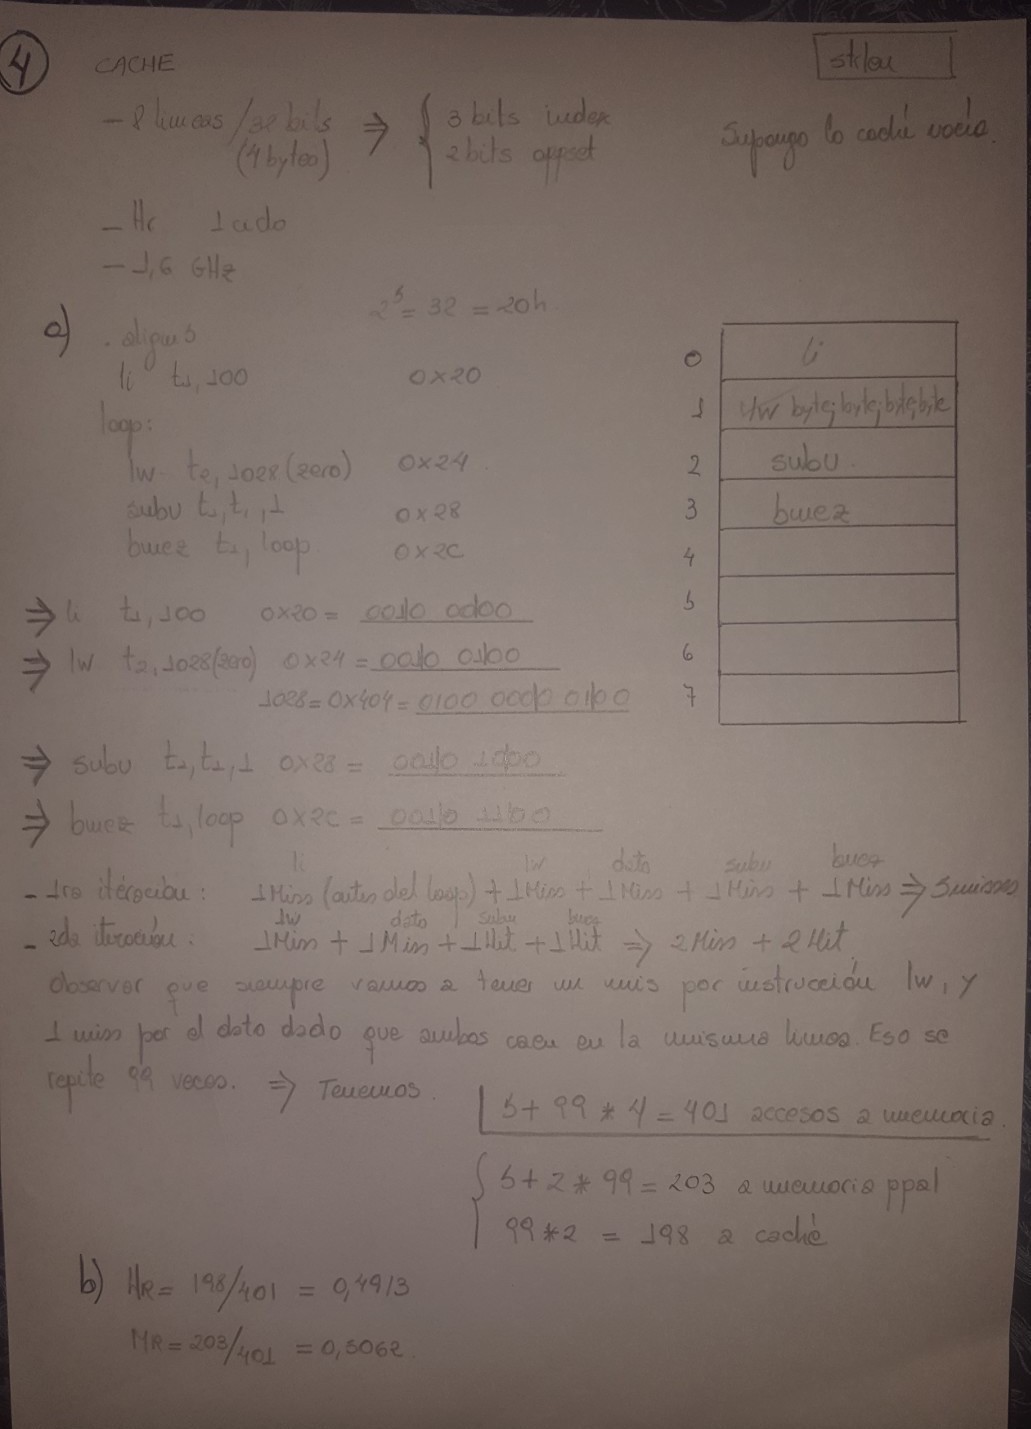 4 CACHE
- 8 lineas / 32 bits ⇒ { 3 bits index
(4 bytes) 2 bits offset
Supongo la caché vacía.
- Hc 1 ciclo
- 1,6 GHz
2^5 = 32 = 20h
a) .align 5
li t1, 100 0x20
loop:
lw t2, 1028(zero) 0x24
subu t1, t1, 1 0x28
bnez t1, loop 0x2C
0 li
1 lw byte; byte; byte; byte
2 subu
3 bnez
4
5
6
7
⇒ li t1, 100 0x20 = 0010 0000
⇒ lw t2, 1028(zero) 0x24 = 0010 0100
1028 = 0x404 = 0100 0000 0100
⇒ subu t1, t1, 1 0x28 = 0010 1000
⇒ bnez t1, loop 0x2C = 0010 1100
li lw dato subu bnez
- 1ra iteración: 1 Miss (antes del loop) + 1 Miss + 1 Miss + 1 Miss + 1 Miss ⇒ 5 misses
lw dato subu bnez
- 2da iteración: 1 Miss + 1 Miss + 1 Hit + 1 Hit ⇒ 2 Miss + 2 Hit
Observar que siempre vamos a tener un mis por instrucción lw, y
1 miss por el dato dado que ambos caen en la misma linea. Eso se
repite 99 veces. ⇒ Tenemos.
5 + 99 * 4 = 401 accesos a memoria.
{ 5 + 2 * 99 = 203 a memoria ppal
99 * 2 = 198 a caché
b) HR = 198/401 = 0,4913
MR = 203/401 = 0,5062